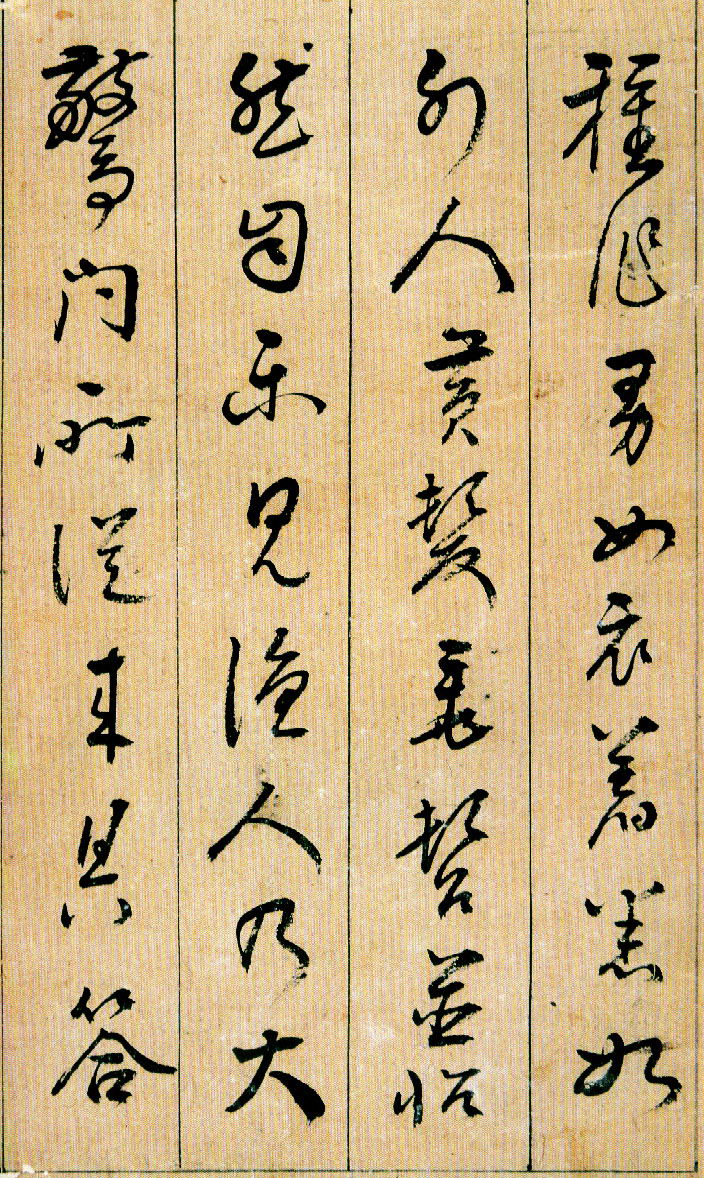 種作男女衣著悉如
外人黃髮垂髫並怡
然自樂見漁人乃大
驚問所從來具答